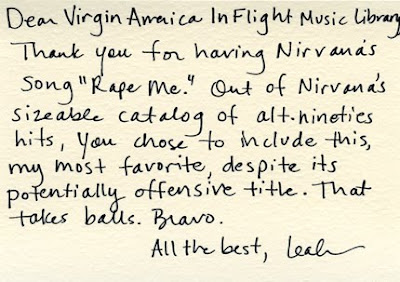 Dear Virgin America InFlight Music Library
Thank you for having Nirvana's
song "Rape Me." Out of Nirvana's
sizeable catalog of alt-nineties
hits, you chose to include this,
my most favorite, despite its
potentially offensive title. That
takes balls. Bravo.
All the best, Leah